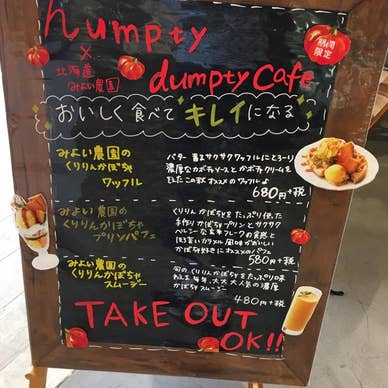 humpty
×
北海道
みよい農園
dumpty Cafe
期間
限定
おいしく食べて"キレイ"になる
みよい農園の
くりりんかぼちゃ
ワッフル
バター香るサクサクワッフルにとろーり
濃厚なカボチャソースとかボチャクリームを
680円+税
みよい農園の
くりりんかぼちゃ
プリンパフェ
くりりんかぼちゃをたっぷり使った
手作りかぼちゃプリンとサクサク
ほろ苦いカラメル風味がおいしい
かぼちゃ好きにおススメのパフェ。
580円+税
みよい農園の
くりりんかぼちゃ
スムージー
旬のくりりんかぼちゃをたっぷり味
かぼちゃスムージー
480円+税
TAKE OUT
OK!!